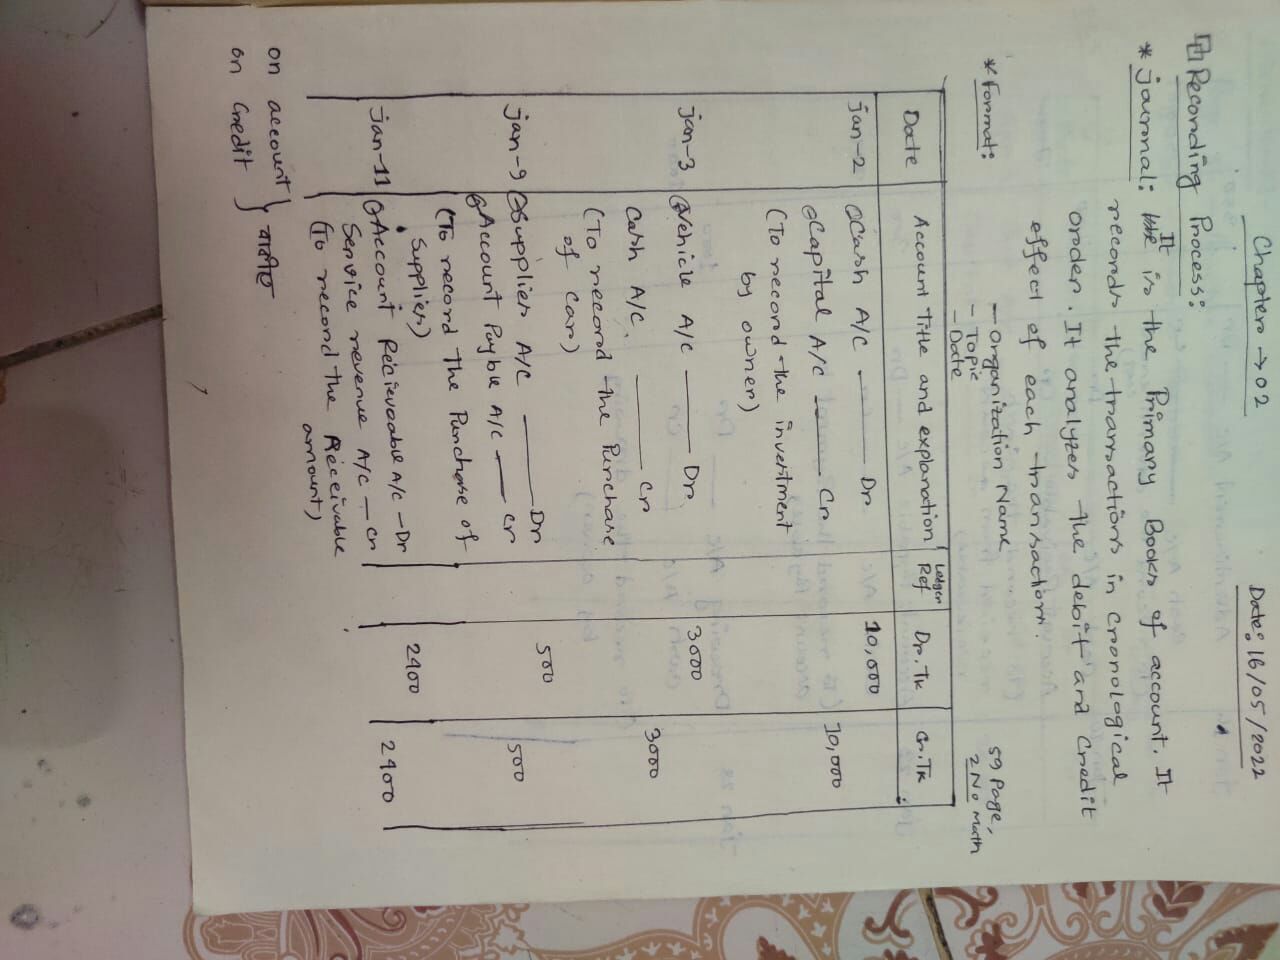 Chapter → 02
Date: 16/05/2022
Recording Process:
* journal: It is the Primary Books of account. It
records the transactions in Cronological
order. It analyzes the debit and Credit
effect of each transaction.
* Format:
- Organization Name
- Topic
- Date
59 Page,
2 No Math
Date Account Title and explanation Ledger Ref Dr. Tk Cr. Tk
jan-2 Cash A/C —— Dr 10,000
Capital A/C —— Cr 10,000
(To record the investment
by owner)
jan-3 Vehicle A/C —— Dr 3000
Cash A/C. —— Cr 3000
(To record the Purchase
of Car)
jan-9 Supplies A/C —— Dr 500
Account Payble A/C — Cr 500
(To record The Purchase of
Supplies)
jan-11 Account Recieveable A/C - Dr 2400
Service revenue A/C — Cr 2400
(To record the Receivable
amount)
on account } বাকীতে
on Credit